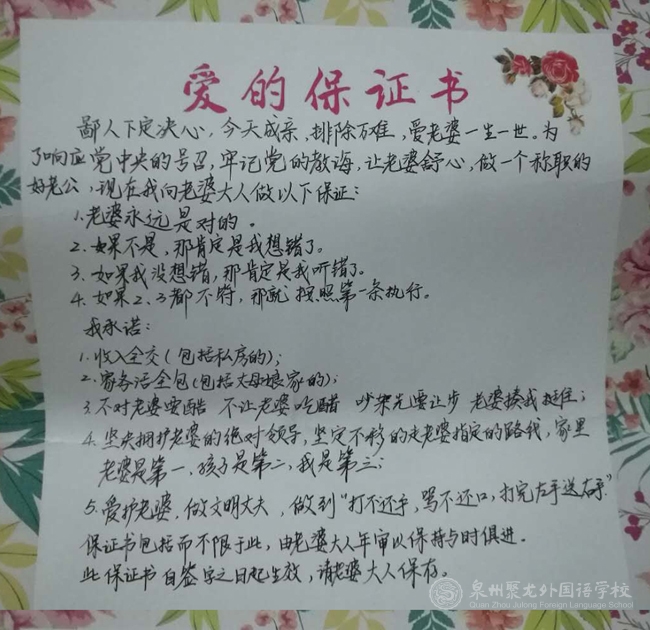 爱的保证书
鄙人下定决心，今天成亲，排除万难，爱老婆一生一世。为
了响应党中央的号召，牢记党的教诲，让老婆舒心，做一个称职的
好老公，现在我向老婆大人做以下保证：
1.老婆永远是对的。
2.如果不是，那肯定是我想错了。
3.如果我没想错，那肯定是我听错了。
4.如果2.3都不符，那就按照第一条执行。
我承诺：
1.收入全交(包括私房的)；
2.家务活全包(包括丈母娘家的)；
3.不对老婆耍酷 不让老婆吃醋 吵架先要让步 老婆揍我挺住；
4.坚决拥护老婆的绝对领导，坚定不移的走老婆指定的路线，家里
老婆是第一、孩子是第二，我是第三；
5.爱护老婆，做文明丈夫，做到“打不还手，骂不还口，打完左手送右手”
保证书包括而不限于此，由老婆大人年审以保持与时俱进。
此保证书自签字之日起生效，请老婆大人保存。
泉州聚龙外国语学校
Quan Zhou Julong Foreign Language School